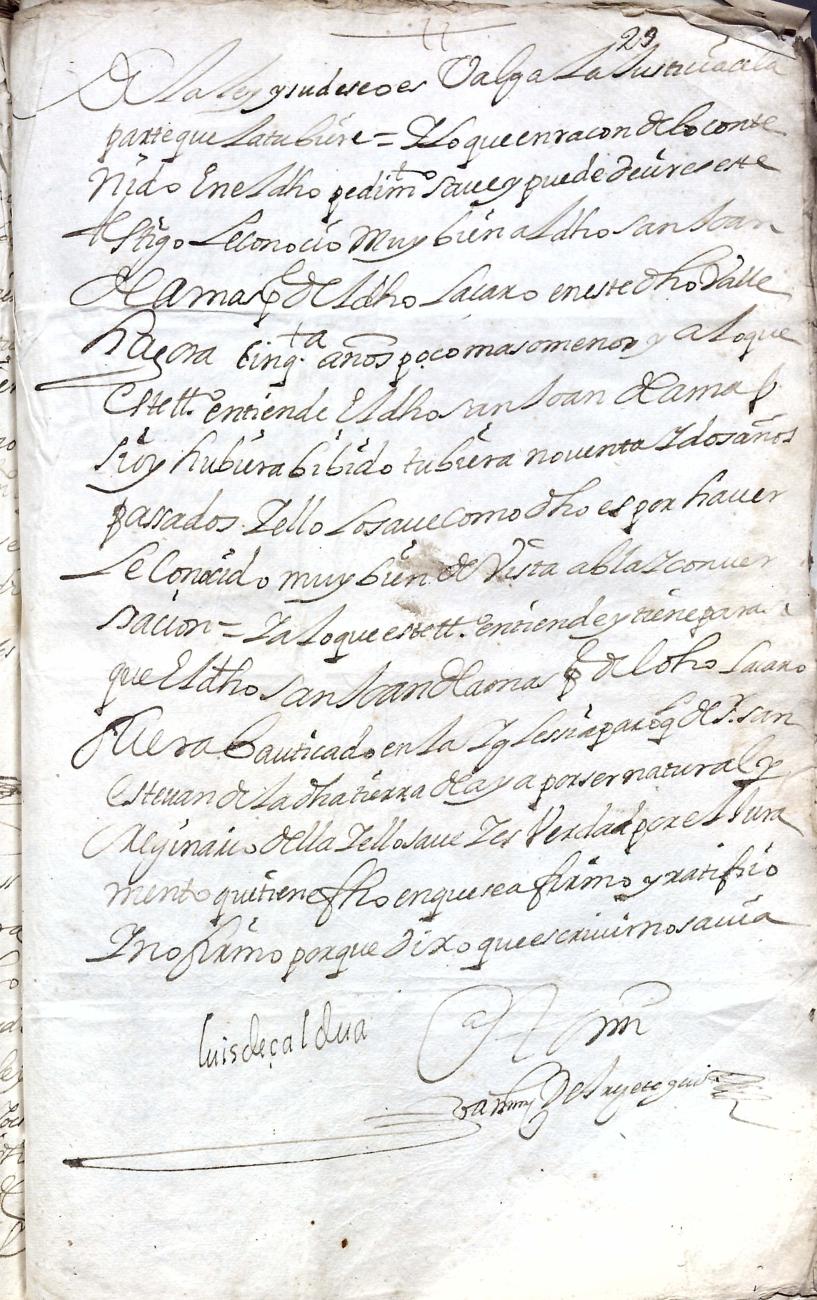 29
De la ley y su deseo es Valga La Justicia a la
parte que La tubiere = Y Lo que en racon de lo conte
nido En el dho pedimto saue y puede decir es este
testigo Le conocio Muy bien a L dho san Joan
de Lamas pe del dho Lacaro en este dho Valle
ha agora cinqta años poco mas o menos y a Lo que
este tto entiende El dho san Joan de Lamas
si oy hubiera bibido tubiera nouenta Y dos años
passados Y ello Lo saue como dho es por hauer
Le Conocido muy bien de Vista abla Y conuer
sacion = Y a Lo que este tt. entiende y tiene para si
que El dho san Joan de Lamas pe del dho Lacaro
fuera Bauticado en La Yglessia parroql de sr. san
Esteuan de La dha tierra de aya por ser natural y
Originario della Y ello saue Y es Verdad por el Jura
mento qui tiene fho en que se afirmo y ratifico
Y no firmo porque dixo que escriuir no sauia
luis de çaldua
Ante mi